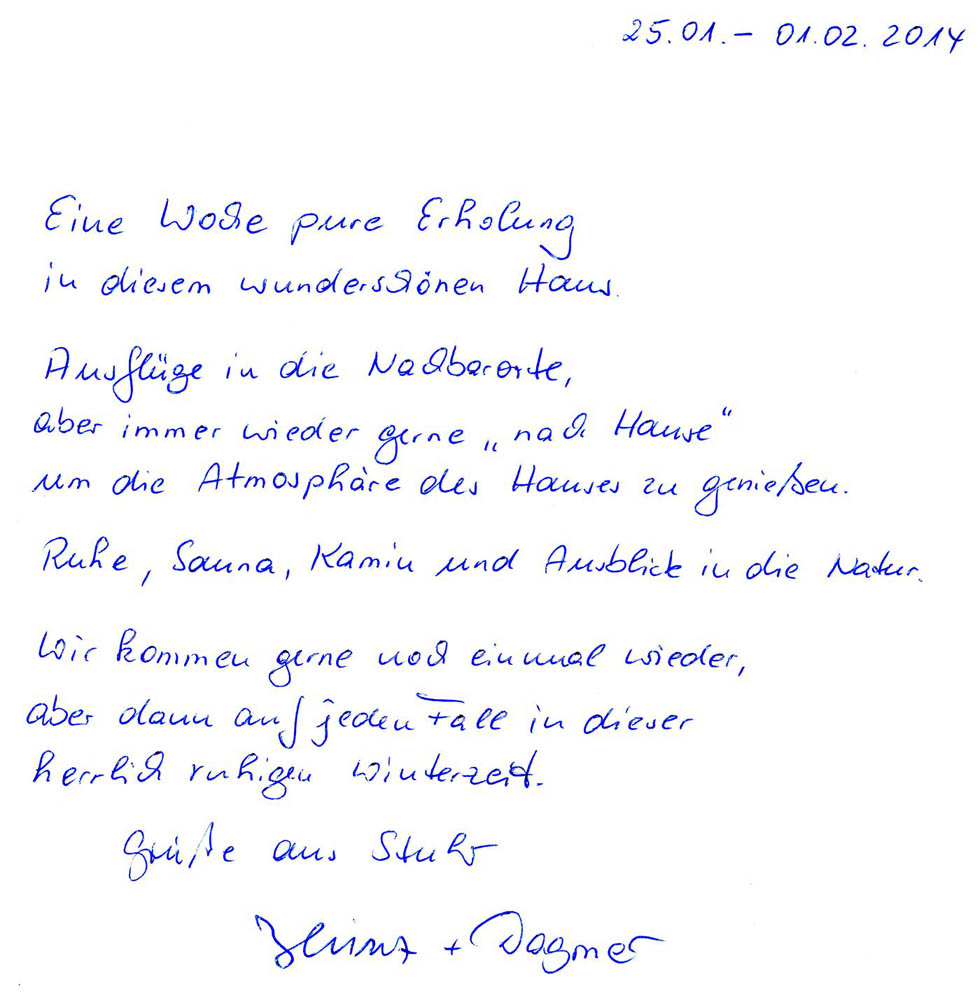 25.01. – 01.02. 2014
Eine Woche pure Erholung
in diesem wunderschönen Haus.
Ausflüge in die Nachbarorte,
aber immer wieder gerne „nach Hause“
um die Atmosphäre des Hauses zu genießen.
Ruhe, Sauna, Kamin und Ausblick in die Natur.
Wir kommen gerne noch einmal wieder,
aber dann auf jeden Fall in dieser
herrlich ruhigen Winterzeit.
Grüße aus Stuhr
Heinz + Dagmar